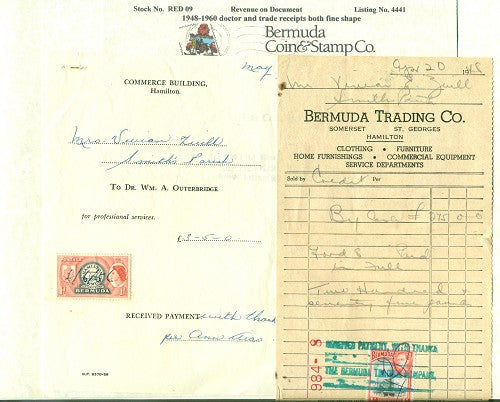 Stock No. RED 09 Revenue on Document Listing No. 4441
1948-1960 doctor and trade receipts both fine shape
Bermuda
Coin&Stamp Co.
May
COMMERCE BUILDING,
Hamilton.
Mrs Vivian
Smiths Parish
TO DR. WM. A. OUTERBRIDGE
for professional services.
£3-5-0
BERMUDA
RECEIVED PAYMENT with thanks
per
Apr 20 1948
Mr Vivian
Smiths Par
BERMUDA TRADING CO.
SOMERSET ST. GEORGES
HAMILTON
CLOTHING · FURNITURE
HOME FURNISHINGS · COMMERCIAL EQUIPMENT
SERVICE DEPARTMENTS
Sold by Credit Per
By 275 0 0
Paid
in Full
Two Hundred &
seventy five pounds
RECEIVED PAYMENT, WITH THANKS
THE BERMUDA TRADING COMPANY,
984 - 8